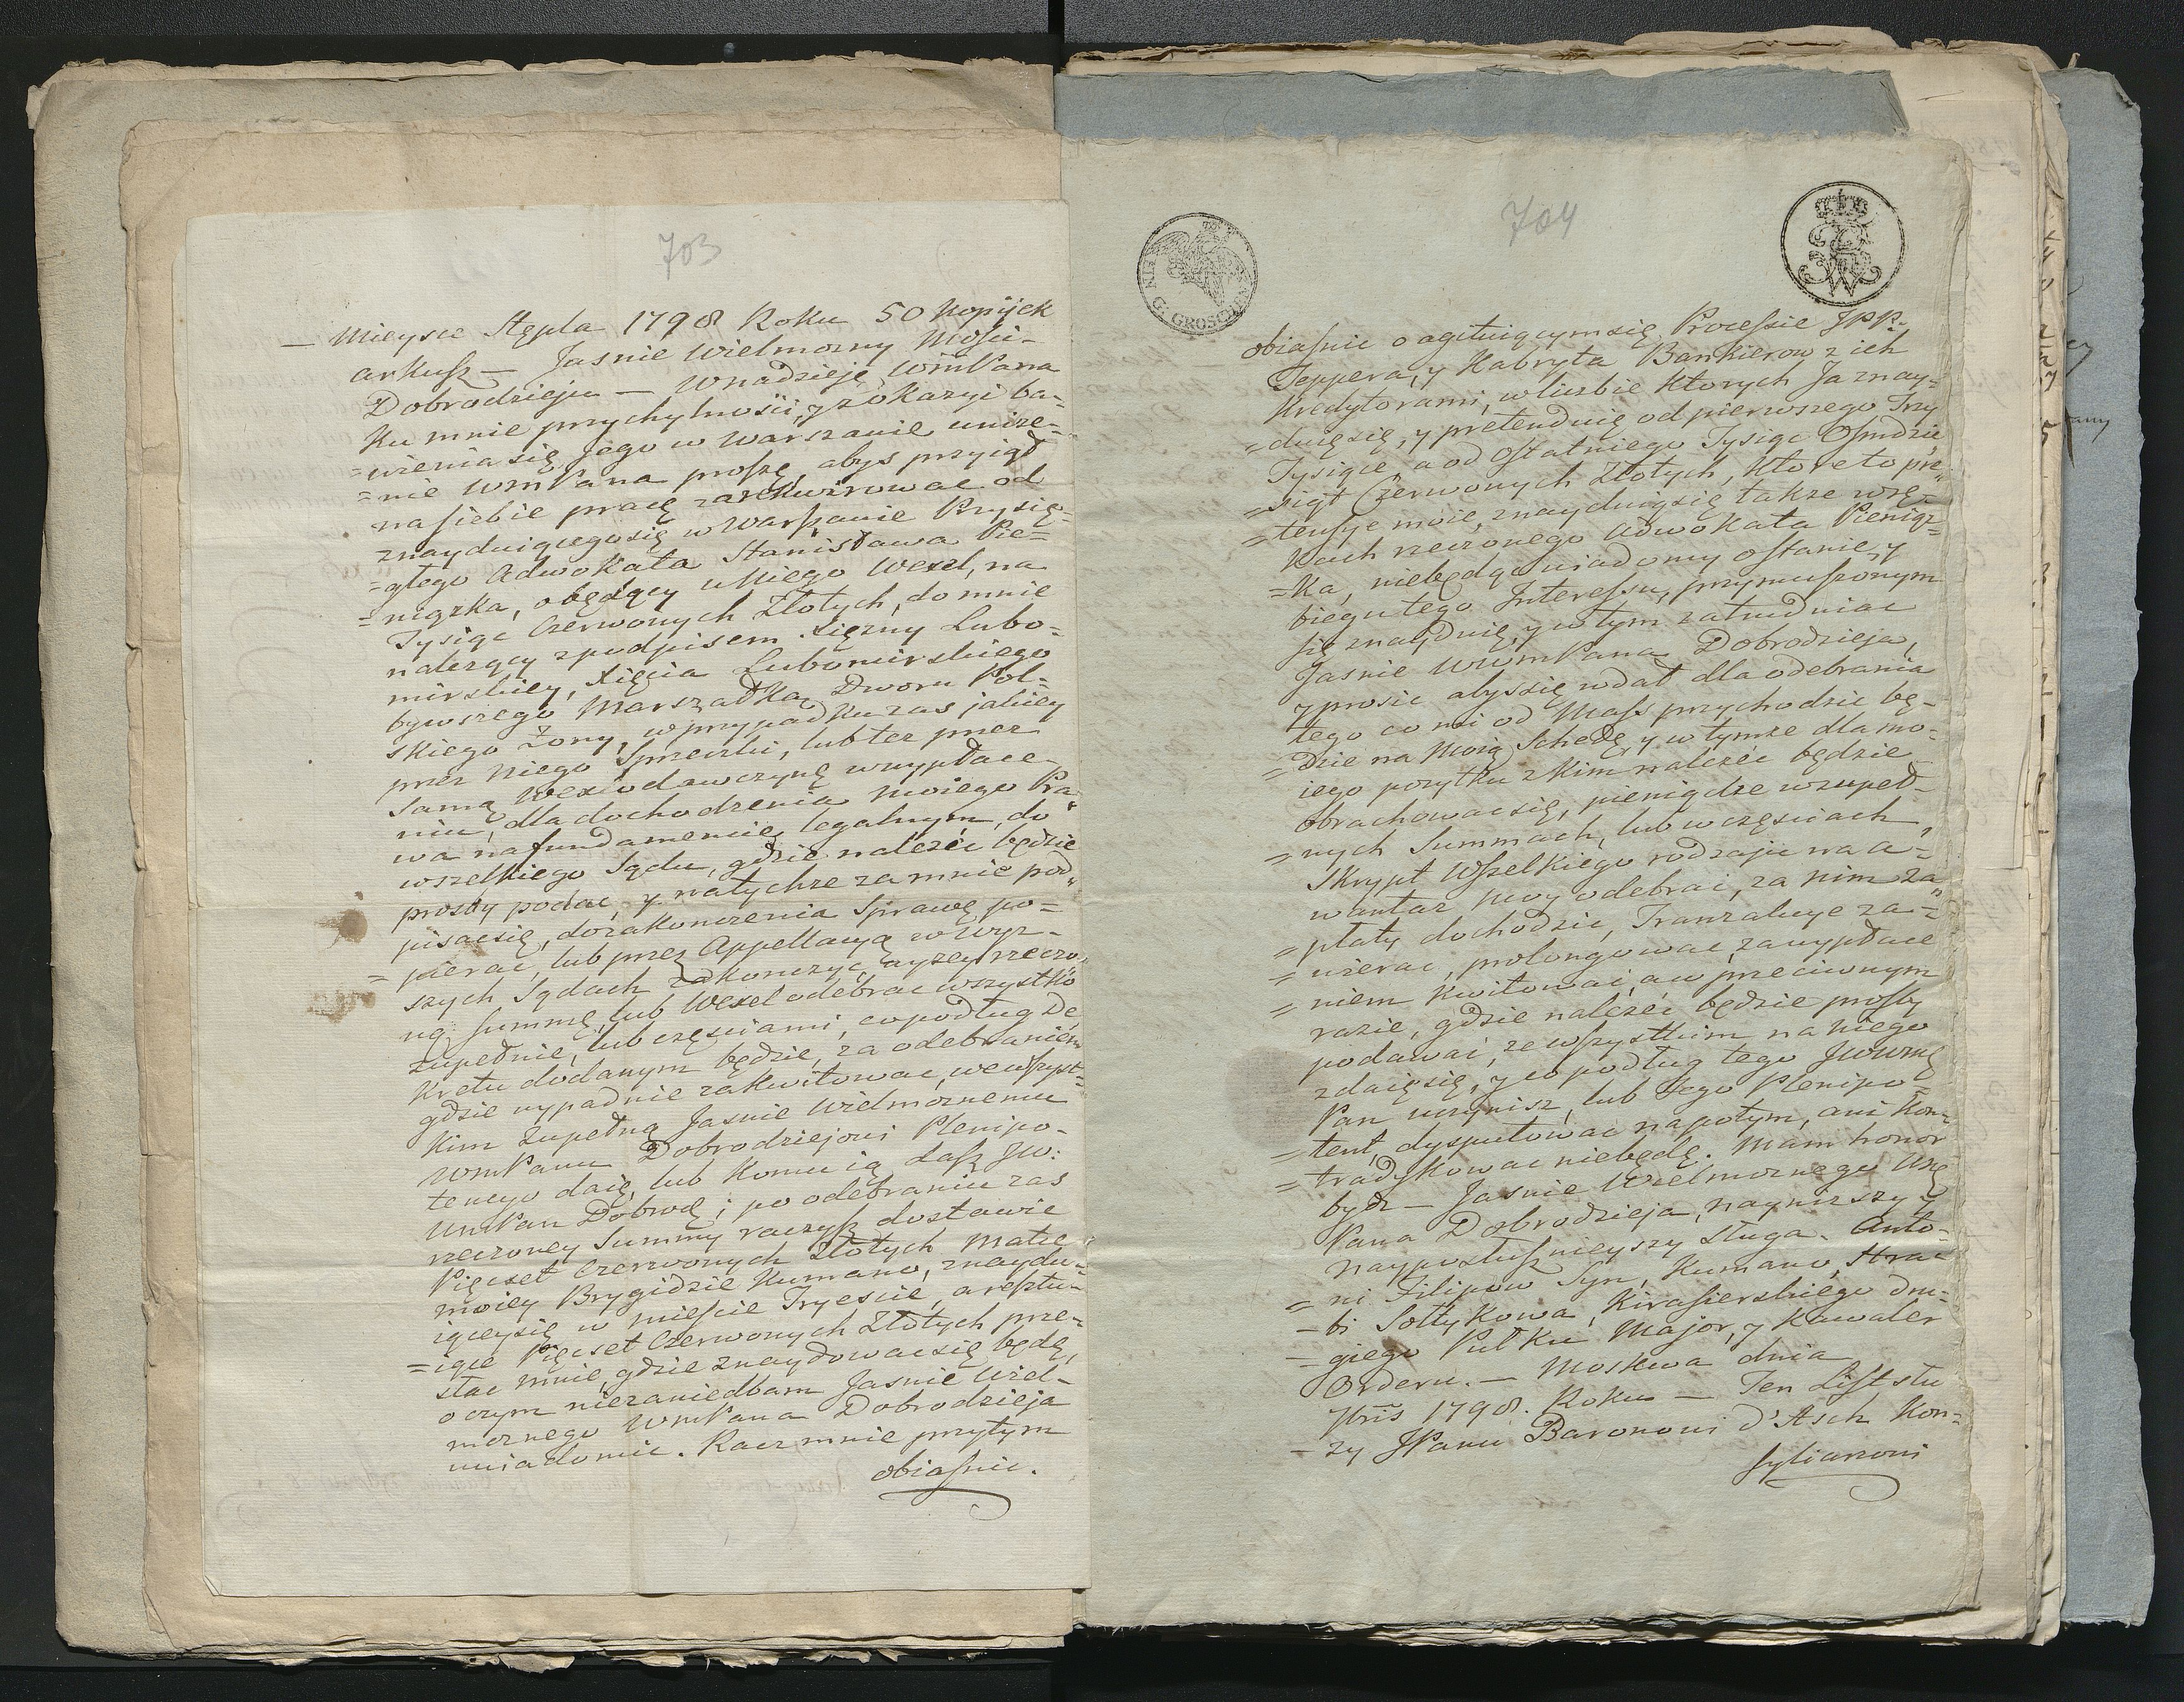 703
— Mieysce Stępla 1798 Roku 50 Kopijek
arkusz — Jasnie Wielmozny Mości-
Dobrodzieju — Wnadzieję WmPana
Ku mnie przychylności, y z okazyi ba-
=wienia się Jego w Warszawie unize-
=nie WmPana proszę, abys przyiął
nasiebie pracę zarekwirować od
znayduiącego się w Warszawie Przysię-
=głego Adwokata Stanisława Pie=
=niązka, obędący u Niego Wexel, na
Tysiąc Czerwonych Złotych, do mnie
należący z podpisem Xięzny Lubo=
mirskiey, Xięcia Lubomirskiego
bywszego Marszałka Dworu Pol=
skiego Zony, w przypadku zas jakiey
przez Niego Sprzeczki, lub tez przez
Samą Wexlodawczynę w wypłace-
niu, dla dochodzenia Moiego Pra=
wa nafundamencie legalnym, do
wszelkiego Sądu, gdzie nalezéć będzie
prosby podać, y natychze zamnie pod=
pisać się, do zakonczenia Sprawę po=
= pierać, lub przez Appellacyą w Wyz-
szych Sądach zakonczyć, a yzey rzeczo=
ną Summę, lub Wexel odebrać wszystko
Zupełnie, lub częściami, co podług De
Kretu dodanym będzie, za odebraniem
gdzie wypadnie zakwitować, we wszyst=
Kim Zupełną Jasnie Wielmoznemu
WmPanu Dobrodziejowi Plenipo-
tencyę daię, lub Komu ią dasz JW:
WmPan Dobrodź; po odebraniu zas
rzeczoney Summy raczysz dostawić
Pięcset Czerwonych Złotych Matce
moiey Brygidzie Kumano, znaydu=
iącey się w mieście Tryescie, a resztu-
=iące Pięcset Czerwonych Złotych prze=
słać mnie, gdzie znaydować się będę,
o czym niezaniedbam Jasnie Wiel-
moznego WmPana Dobrodzieja
uwiadomić. Racz mnie przytym
obiasnić.
704
G. GROSCHEN
obiasnić o agituiącym się Processie JPP:
Teppera, y Kabryta Bankierow z ich
Kredytorami, w liczbie Ktorych Ja znay=
=duię się, y pretenduię od pierwszego Trzy
Tysiące, a od ostatniego Tysiąc Osmdzie
=siąt Czerwonych Złotych, Ktoreto pre=
=tensye moie, znayduią się takze w rę-
Kach rzeczonego Adwokata Pieniąz=
=Ka, niebędąc wiadomy ostanie, y
biegu tego Interessu, przymuszonym
się znayduię, y w tym zatrudniać
Jasnie WWmPana Dobrodzieja,
y prosić abys się udał dla odebrania
tego co mi od Mass przychodzić bę-
=dzie na Moią Schedę, y w tymze dla mo-
iego pozytku z Kim nalezéć będzie
obrachować się, pieniądze w zupeł-
=nych Summach, lub w częściach,
Skrypt Wszelkiego rodzaju na a-
wantaz moy odebrać, za nim za=
=płaty dochodzić, Tranzakcye za-=
=wierać, prolongować, zawypłace
=niem Kwitować, a w przeciwnym
razie, gdzie nalezéć będzie prosby
podawać, ze wszystkim na Niego
zdaię się, y co podług tego JWWmć
Pan uczynisz, lub Jego Plenipo=
=tent, dysputować napotym, ani Kon=
=tradykować niebędę. Mam honor
bydz — Jasnie Wielmoznego Wć
Pana Dobrodzieja, nayniższy y
nayposłusznieyszy Sługa. Anto-
=ni Filipow Syn, Kumano, Hrac
-bi Sołtykowa, Kirasierskiego dru=
=giego Pułku Major, y Kawaler
Orderu. — Moskwa dnia
1798. Roku — Ten List słu
-zy JPanu Baronowi d'Asch Kon=
syliarzowi